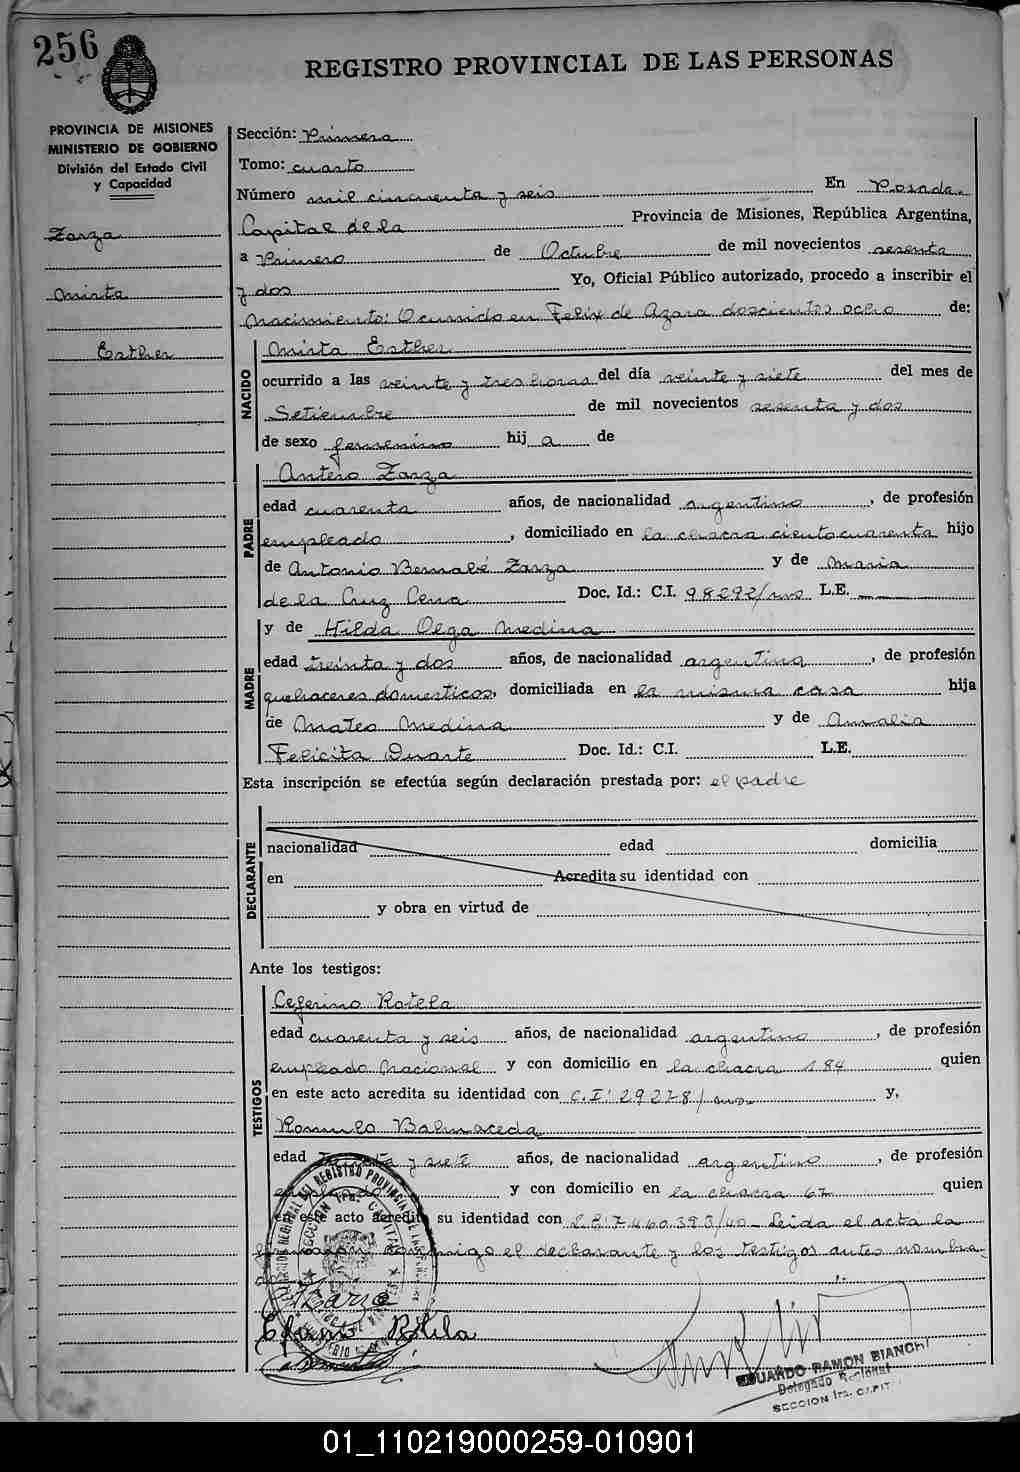 256
REGISTRO PROVINCIAL DE LAS PERSONAS
PROVINCIA DE MISIONES
MINISTERIO DE GOBIERNO
División del Estado Civil
y Capacidad
Zarza
Mirta
Esther
Sección: Primera
Tomo: cuarto
Número mil cincuenta y seis En Posadas
Capital de la Provincia de Misiones, República Argentina,
a Primero de Octubre de mil novecientos sesenta
y dos Yo, Oficial Público autorizado, procedo a inscribir el
Nacimiento: Ocurrido en Felix de Azara doscientos ocho de:
NACIDO
Mirta Esther
ocurrido a las veinte y tres horas del día veinte y siete del mes de
Setiembre de mil novecientos sesenta y dos
de sexo femenino hij a de
PADRE
Antero Zarza
edad cuarenta años, de nacionalidad argentino, de profesión
empleado, domiciliado en la chacra ciento cuarenta hijo
de Antonio Bernabé Zarza y de Maria
de la Cruz Cena Doc. Id.: C.I. 98292/ L.E.
MADRE
y de Hilda Olga Medina
edad treinta y dos años, de nacionalidad argentina, de profesión
quehaceres domesticos, domiciliada en la misma casa hija
de Mateo Medina y de Amalia
Felicita Duarte Doc. Id.: C.I. L.E.
Esta inscripción se efectúa según declaración prestada por: el padre
DECLARANTE
nacionalidad edad domicilia
en Acredita su identidad con
y obra en virtud de
Ante los testigos:
TESTIGOS
Ceferino Rotela
edad cuarenta y seis años, de nacionalidad argentino, de profesión
empleado Nacional y con domicilio en la chacra 184 quien
en este acto acredita su identidad con C.I: 29278/ y,
Romulo Balmaceda
edad y siete años, de nacionalidad argentino, de profesión
y con domicilio en la chacra 67 quien
en este acto acredita su identidad con L.E: 7.460.393/40- Leida el acta la
conmigo el declarante y los testigos antes nombra-
Zarza
Rotela
EDUARDO RAMON BIANCHI
Delegado Regional
SECCION 1ra. CAPITAL
01_110219000259-010901